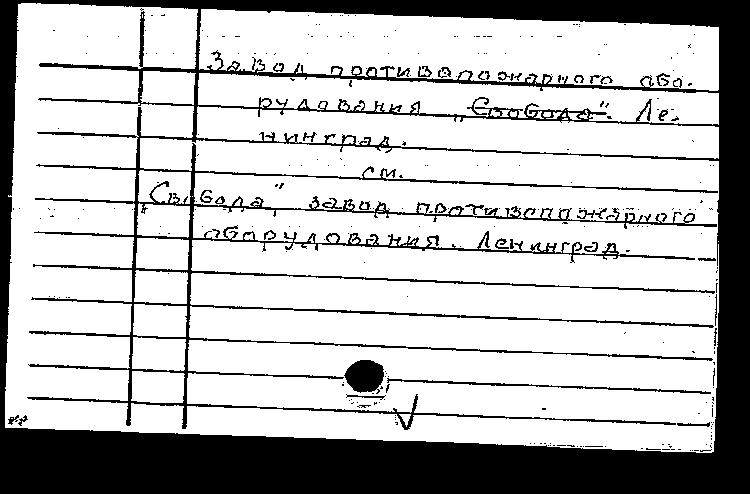 Завод противопожарного обо-
рудования „Свобода". Ле-
нинград.
см.
„Свобода", завод противопожарного
оборудования. Ленинград.